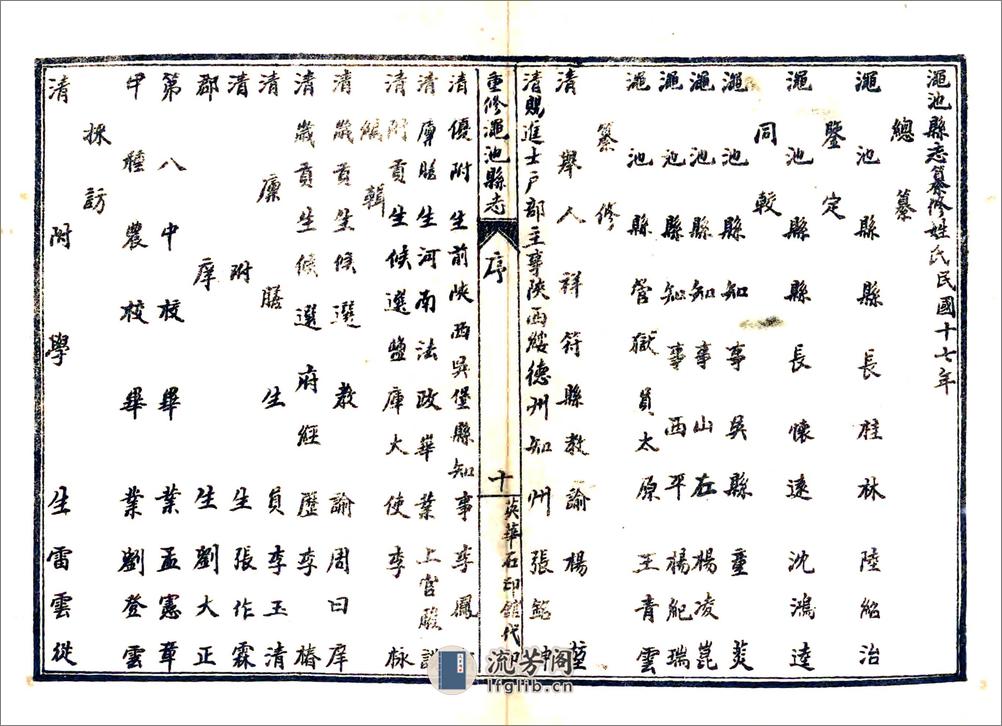 澠池縣志纂修姓氏民國十七年
總纂
澠池縣縣長桂林陸紹治
鑒定
澠池縣縣長懷遠沈鴻逵
同較
澠池縣知事吳縣董
澠池縣知事山左楊凌崑
澠池縣知事西平楊
澠池縣管獄員太原王青雲
纂修
清舉人祥符縣教諭楊堃
清賜進士戶部主事陝西綏德州知州張紹
重修澠池縣志
序
十
英華石印館代印
清優附生前陝西吳堡縣知事李鳳
清廩膳生河南法政畢業上官
清附貢生候選鹽庫大使李
編輯
清歲貢生候選教諭周曰庠
清歲貢生候選府經歷李椿
清廩膳生員李玉清
清附生張作霖
郡庠生劉大正
第八中校畢業孟憲章
甲種農校畢業劉登雲
採訪
清附學生雷雲從
流芳阁
lfglib.cn